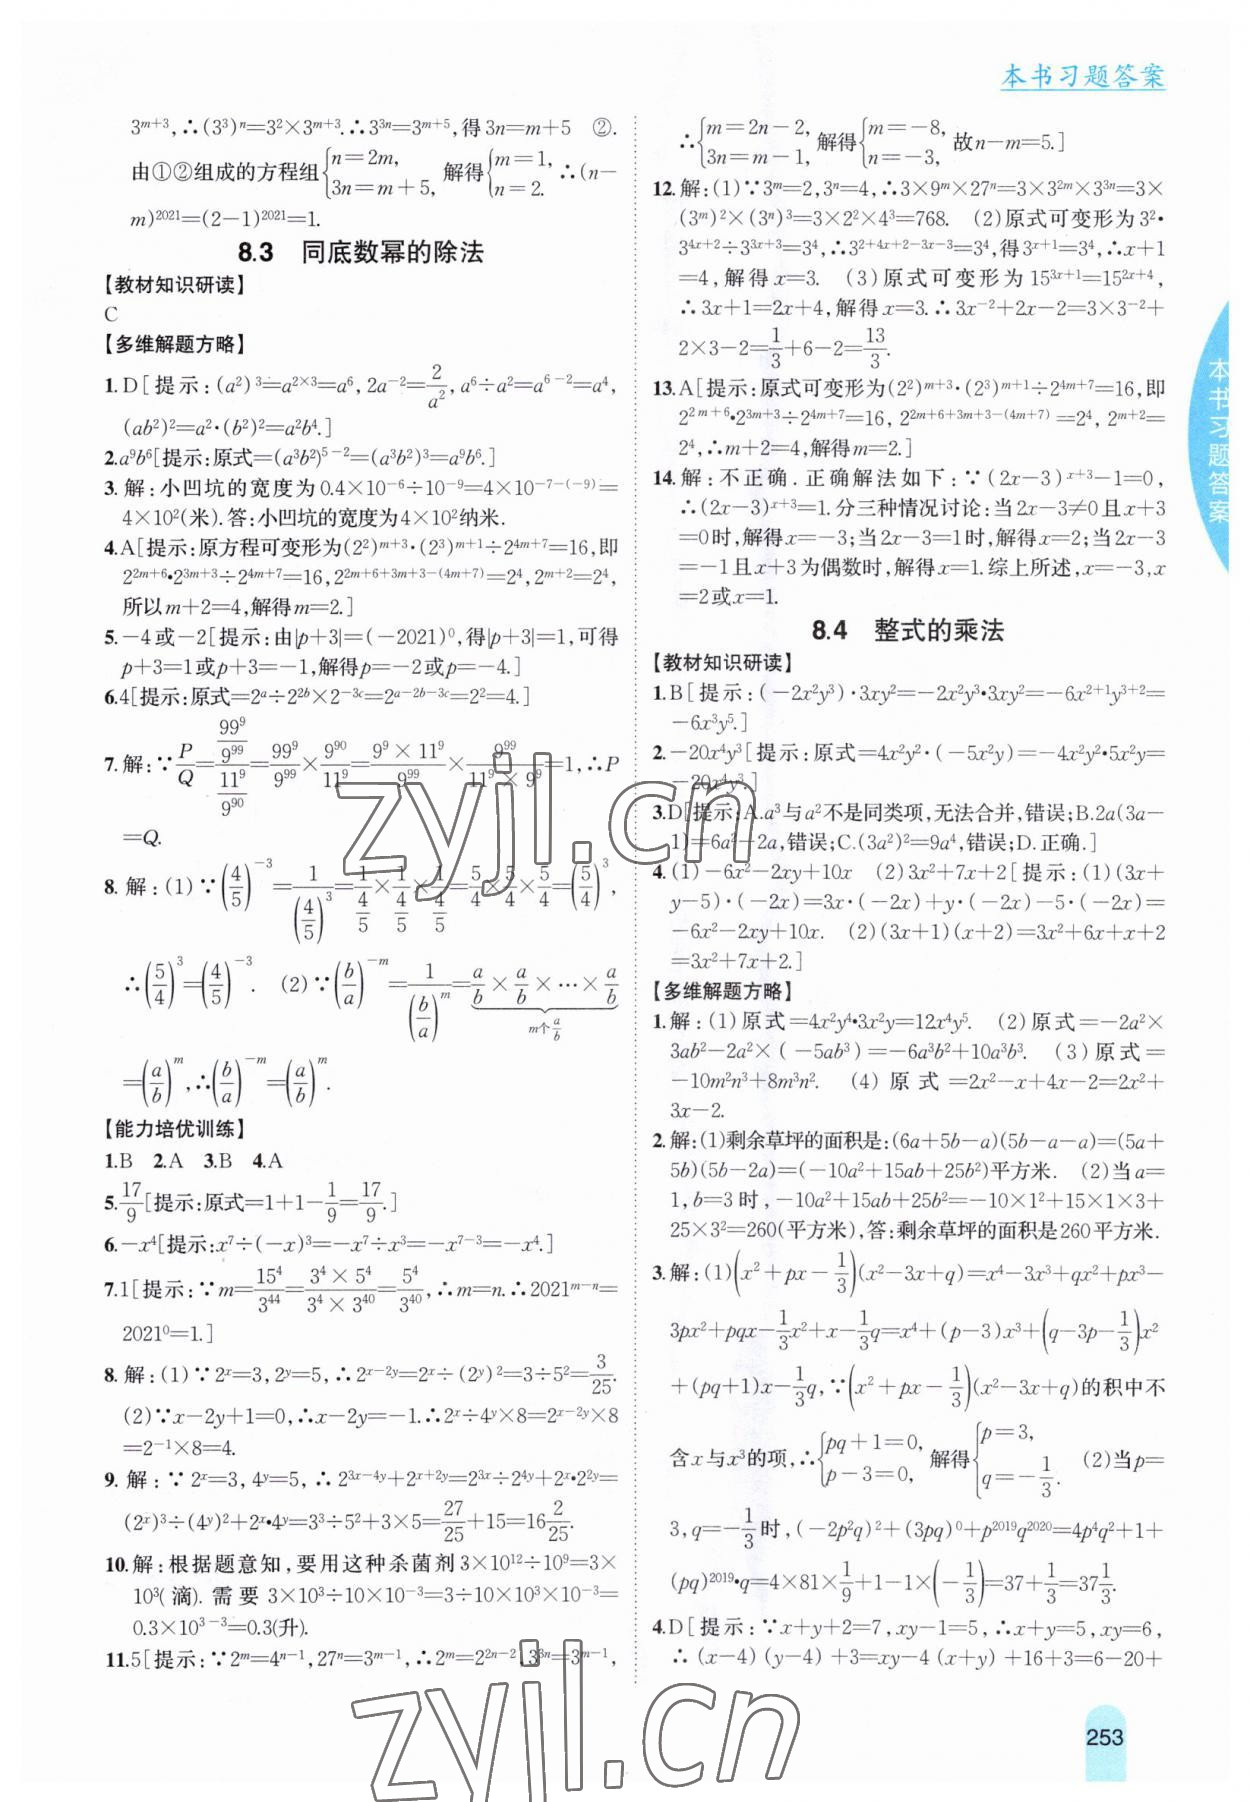 本书习题答案
3^{m+3},∴(3^3)^n=3^2×3^{m+3}.∴3^{3n}=3^{m+5},得3n=m+5 ②.
由①②组成的方程组{n=2m, 3n=m+5, 解得{m=1, n=2. ∴(n-
m)^{2021}=(2-1)^{2021}=1.
8.3 同底数幂的除法
【教材知识研读】
C
【多维解题方略】
1.D[提示:(a^2)^3=a^{2×3}=a^6,2a^{-2}=2/a^2,a^6÷a^2=a^{6-2}=a^4,
(ab^2)^2=a^2·(b^2)^2=a^2b^4.]
2.a^9b^6[提示:原式=(a^3b^2)^{5-2}=(a^3b^2)^3=a^9b^6.]
3.解:小凹坑的宽度为0.4×10^{-6}÷10^{-9}=4×10^{-7-(-9)}=
4×10^2(米).答:小凹坑的宽度为4×10^2纳米.
4.A[提示:原方程可变形为(2^2)^{m+3}·(2^3)^{m+1}÷2^{4m+7}=16,即
2^{2m+6}·2^{3m+3}÷2^{4m+7}=16,2^{2m+6+3m+3-(4m+7)}=2^4,2^{m+2}=2^4,
所以m+2=4,解得m=2.]
5.-4或-2[提示:由|p+3|=(-2021)^0,得|p+3|=1,可得
p+3=1或p+3=-1,解得p=-2或p=-4.]
6.4[提示:原式=2^a÷2^{2b}×2^{-3c}=2^{a-2b-3c}=2^2=4.]
7.解:∵P/Q=(99^9/9^{99})/(11^9/9^{90})=99^9/9^{99}×9^{90}/11^9=(9^9×11^9)/9^{99}×9^{99}/(11^9×9^9)=1,∴P
=Q.
8.解:(1)∵(4/5)^{-3}=1/(4/5)^3=1/(4/5)×1/(4/5)×1/(4/5)=5/4×5/4×5/4=(5/4)^3,
∴(5/4)^3=(4/5)^{-3}. (2)∵(b/a)^{-m}=1/(b/a)^m=a/b×a/b×…×a/b m个a/b
=(a/b)^m,∴(b/a)^{-m}=(a/b)^m.
【能力培优训练】
1.B 2.A 3.B 4.A
5.17/9[提示:原式=1+1-1/9=17/9.]
6.-x^4[提示:x^7÷(-x)^3=-x^7÷x^3=-x^{7-3}=-x^4.]
7.1[提示:∵m=15^4/3^{44}=(3^4×5^4)/(3^4×3^{40})=5^4/3^{40},∴m=n.∴2021^{m-n}=
2021^0=1.]
8.解:(1)∵2^x=3,2^y=5,∴2^{x-2y}=2^x÷(2^y)^2=3÷5^2=3/25.
(2)∵x-2y+1=0,∴x-2y=-1.∴2^x÷4^y×8=2^{x-2y}×8
=2^{-1}×8=4.
9.解:∵2^x=3,4^y=5,∴2^{3x-4y}+2^{x+2y}=2^{3x}÷2^{4y}+2^x·2^{2y}=
(2^x)^3÷(4^y)^2+2^x·4^y=3^3÷5^2+3×5=27/25+15=16 2/25.
10.解:根据题意知,要用这种杀菌剂3×10^{12}÷10^9=3×
10^3(滴).需要3×10^3÷10×10^{-3}=3÷10×10^3×10^{-3}=
0.3×10^{3-3}=0.3(升).
11.5[提示:∵2^m=4^{n-1},27^n=3^{m-1},∴2^m=2^{2n-2},3^{3n}=3^{m-1},
∴{m=2n-2, 3n=m-1, 解得{m=-8, n=-3, 故n-m=5.]
12.解:(1)∵3^m=2,3^n=4,∴3×9^m×27^n=3×3^{2m}×3^{3n}=3×
(3^m)^2×(3^n)^3=3×2^2×4^3=768. (2)原式可变形为3^2·
3^{4x+2}÷3^{x+3}=3^4,∴3^{2+4x+2-x-3}=3^4,得3^{x+1}=3^4,∴x+1
=4,解得x=3. (3)原式可变形为15^{3x+1}=15^{2x+4},
∴3x+1=2x+4,解得x=3.∴3x^{-2}+2x-2=3×3^{-2}+
2×3-2=1/3+6-2=13/3.
13.A[提示:原式可变形为(2^2)^{m+3}·(2^3)^{m+1}÷2^{4m+7}=16,即
2^{2m+6}·2^{3m+3}÷2^{4m+7}=16,2^{2m+6+3m+3-(4m+7)}=2^4,2^{m+2}=
2^4,∴m+2=4,解得m=2.]
14.解:不正确.正确解法如下:∵(2x-3)^{x+3}-1=0,
∴(2x-3)^{x+3}=1.分三种情况讨论:当2x-3≠0且x+3
=0时,解得x=-3;当2x-3=1时,解得x=2;当2x-3
=-1且x+3为偶数时,解得x=1.综上所述,x=-3,x
=2或x=1.
8.4 整式的乘法
【教材知识研读】
1.B[提示:(-2x^2y^3)·3xy^2=-2x^2y^3·3xy^2=-6x^{2+1}y^{3+2}=
-6x^3y^5.]
2.-20x^4y^3[提示:原式=4x^2y^2·(-5x^2y)=-4x^2y^2·5x^2y=
-20x^4y^3.]
3.D[提示:A.a^3与a^2不是同类项,无法合并,错误;B.2a(3a-
1)=6a^2-2a,错误;C.(3a^2)^2=9a^4,错误;D.正确.]
4.(1)-6x^2-2xy+10x (2)3x^2+7x+2[提示:(1)(3x+
y-5)·(-2x)=3x·(-2x)+y·(-2x)-5·(-2x)=
-6x^2-2xy+10x. (2)(3x+1)(x+2)=3x^2+6x+x+2
=3x^2+7x+2.]
【多维解题方略】
1.解:(1)原式=4x^2y^4·3x^2y=12x^4y^5. (2)原式=-2a^2×
3ab^2-2a^2×(-5ab^3)=-6a^3b^2+10a^3b^3. (3)原式=
-10m^2n^3+8m^3n^2. (4)原式=2x^2-x+4x-2=2x^2+
3x-2.
2.解:(1)剩余草坪的面积是:(6a+5b-a)(5b-a-a)=(5a+
5b)(5b-2a)=(-10a^2+15ab+25b^2)平方米. (2)当a=
1,b=3时,-10a^2+15ab+25b^2=-10×1^2+15×1×3+
25×3^2=260(平方米),答:剩余草坪的面积是260平方米.
3.解:(1)(x^2+px-1/3)(x^2-3x+q)=x^4-3x^3+qx^2+px^3-
3px^2+pqx-1/3x^2+x-1/3q=x^4+(p-3)x^3+(q-3p-1/3)x^2
+(pq+1)x-1/3q,∵(x^2+px-1/3)(x^2-3x+q)的积中不
含x与x^3的项,∴{pq+1=0, p-3=0, 解得{p=3, q=-1/3. (2)当p=
3,q=-1/3时,(-2p^2q)^2+(3pq)^0+p^{2019}q^{2020}=4p^4q^2+1+
(pq)^{2019}·q=4×81×1/9+1-1×(-1/3)=37+1/3=37 1/3.
4.D[提示:∵x+y+2=7,xy-1=5,∴x+y=5,xy=6,
∴(x-4)(y-4)+3=xy-4(x+y)+16+3=6-20+
本书习题答案
253
zyjl.cn
zyjl.cn